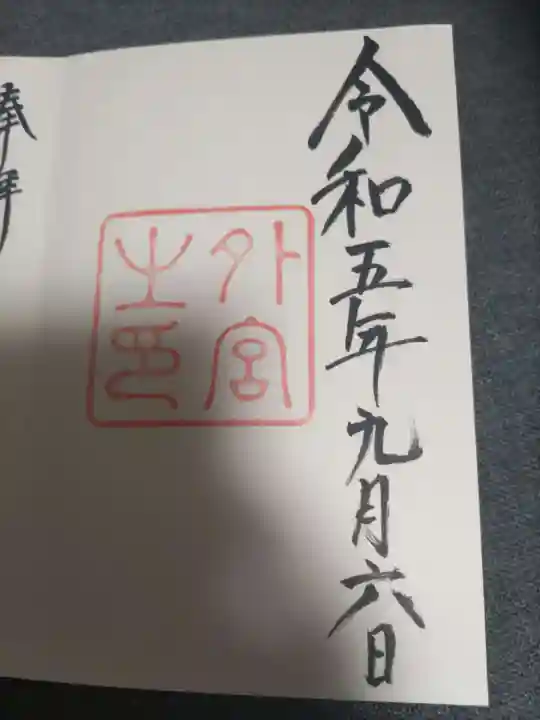 令和五年九月六日
外宮
之印
奉拝